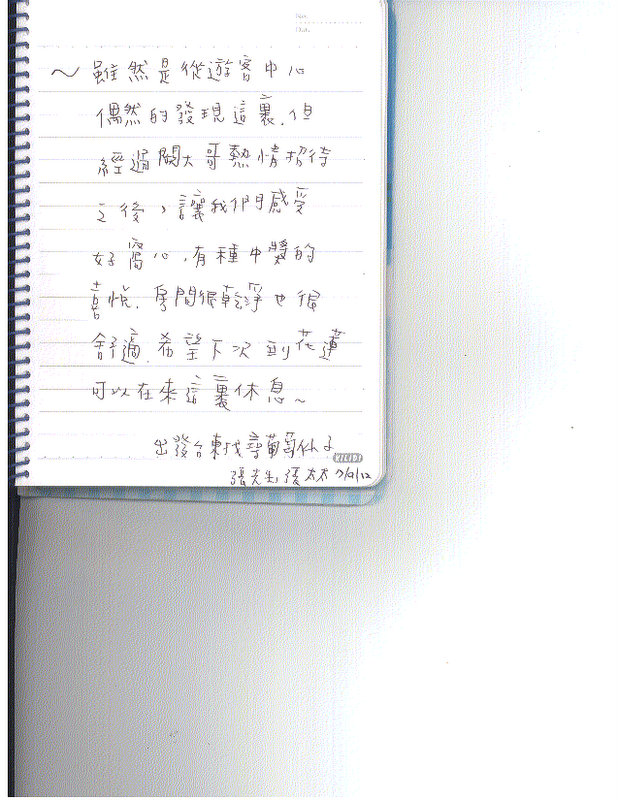 No.
Date.
～雖然是從遊客中心
偶然的發現這裏,但
經過關大哥熱情招待
之後,讓我們感受
好窩心,有種中獎的
喜悅,房間很乾淨也很
舒適,希望下次到花蓮
可以在來這裏休息~
出發台東找尋葡萄仙子
KILIDI
張先生,張太太